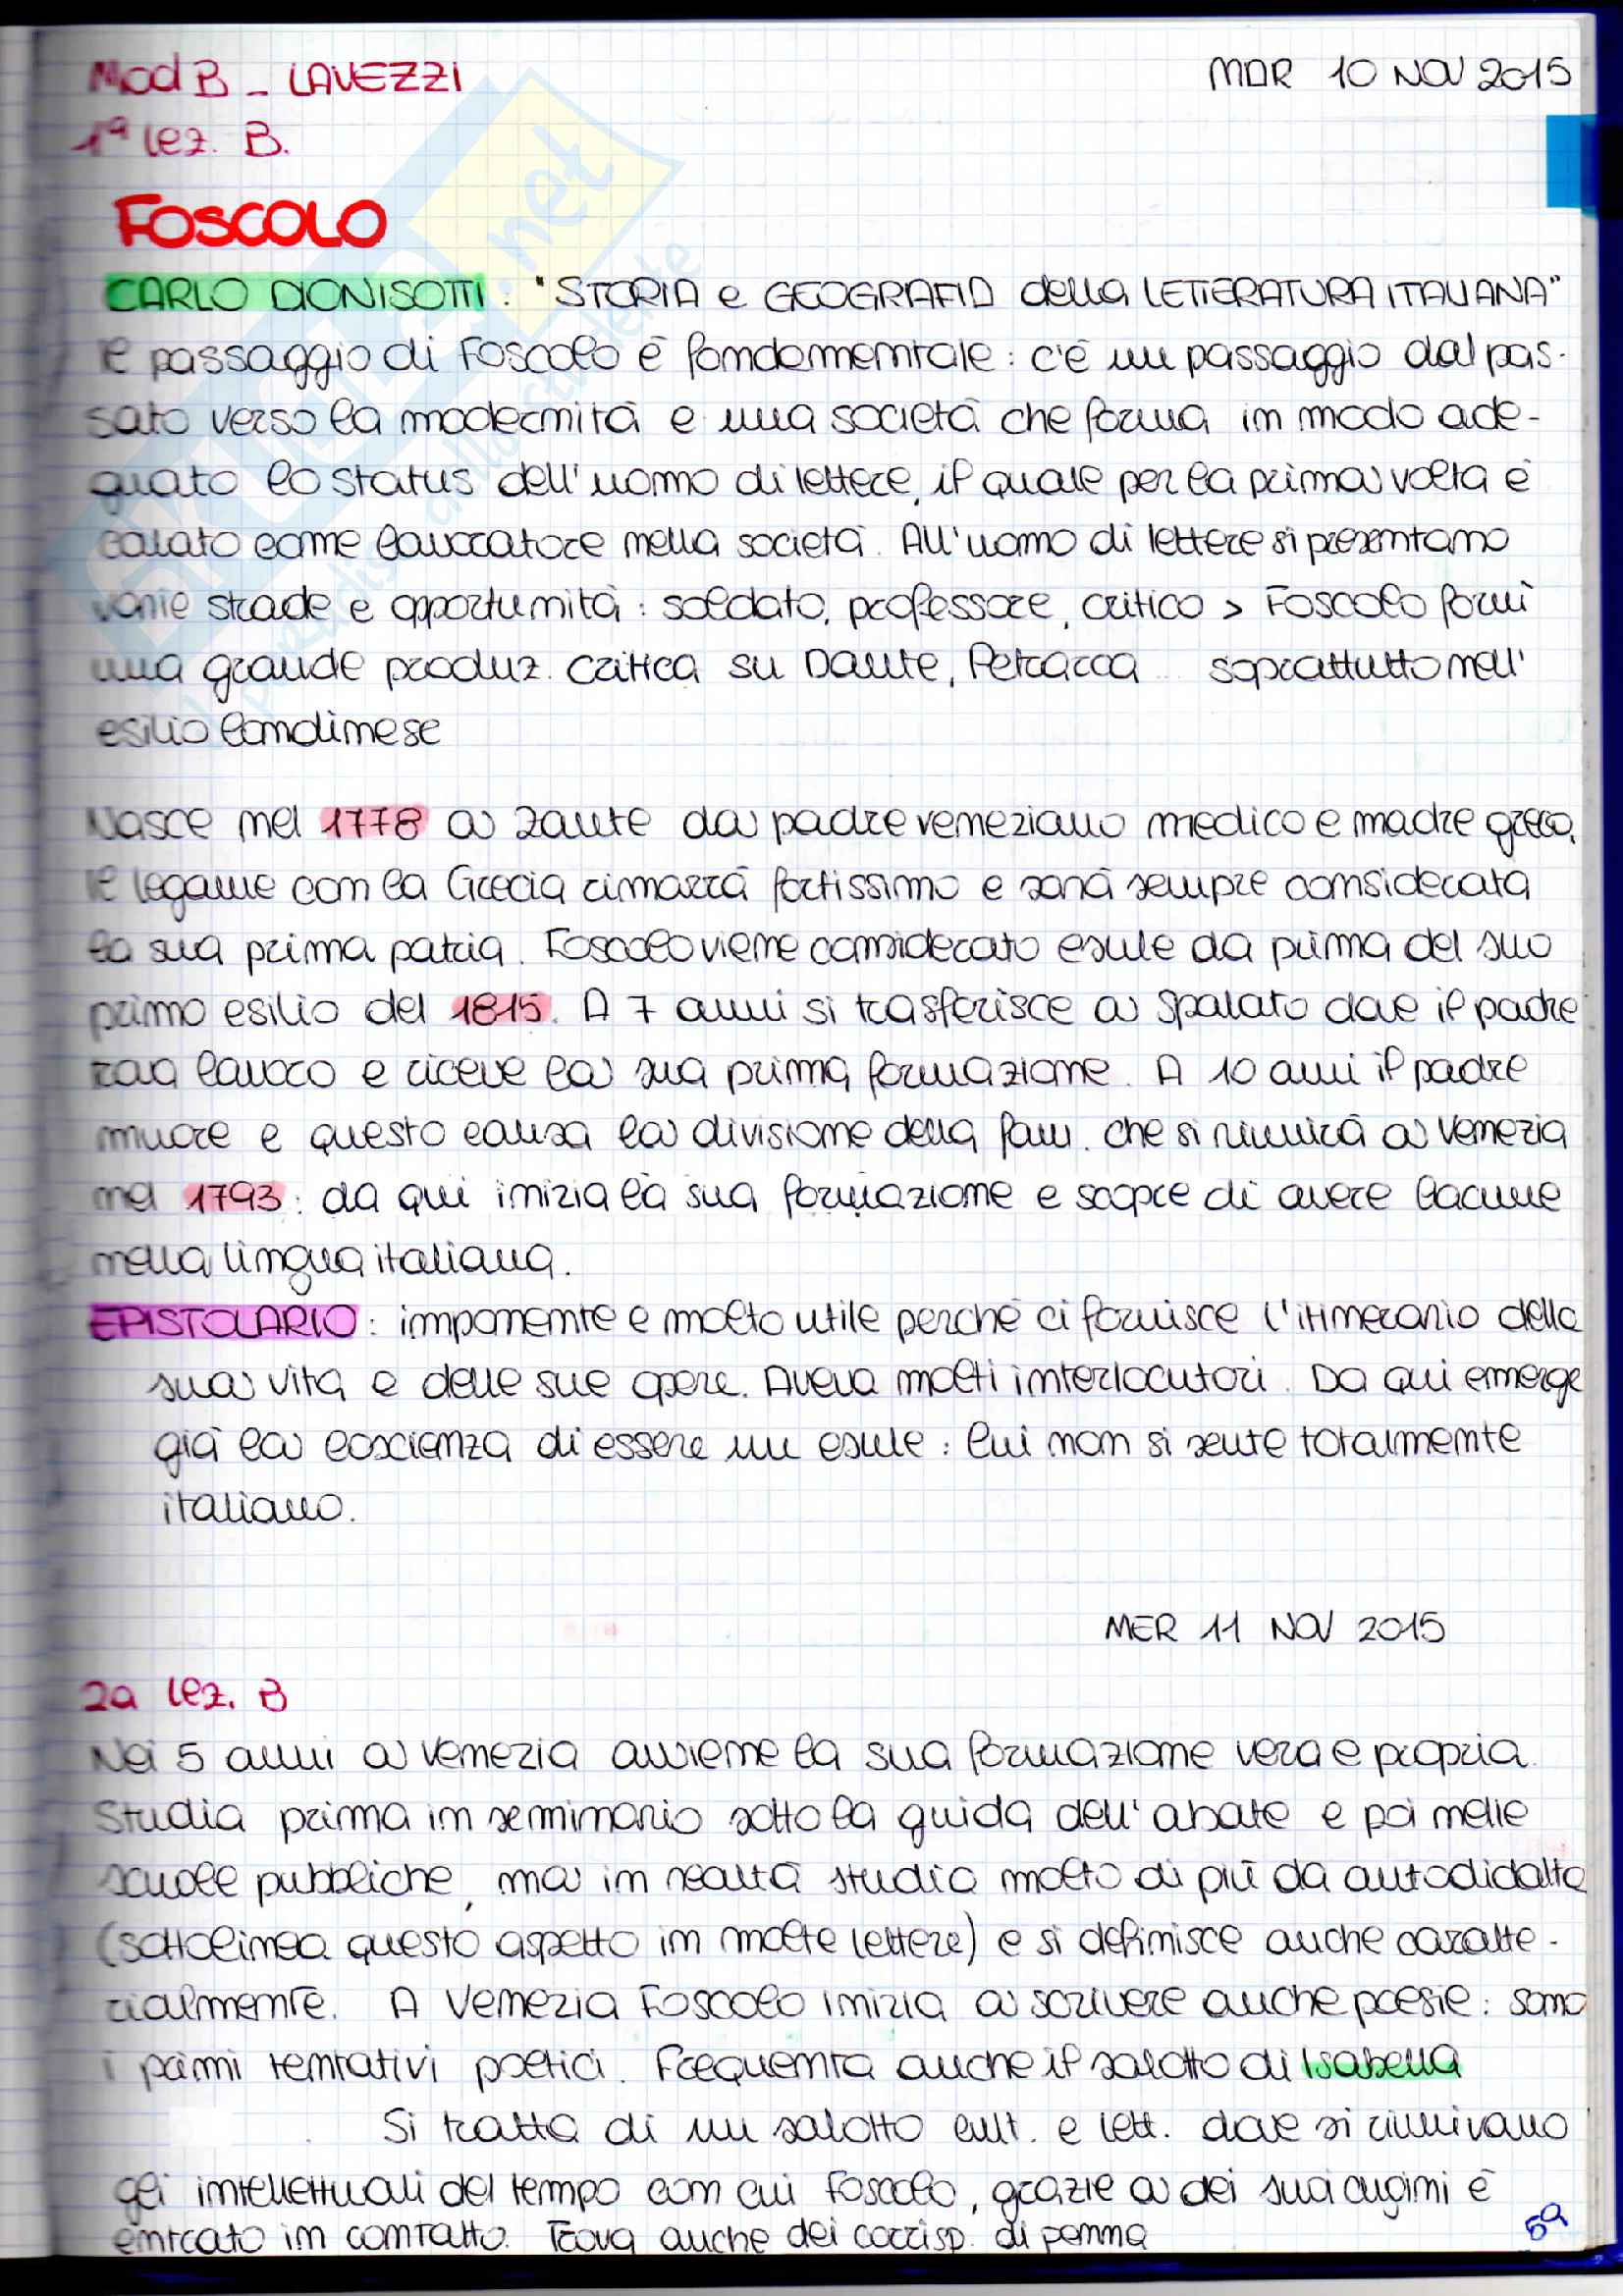 Mod B - LAVEZZI
MAR 10 NOV 2015
1ª lez. B.
FOSCOLO
CARLO DIONISOTTI: "STORIA e GEOGRAFIA della LETTERATURA ITALIANA"
Il passaggio di Foscolo è fondamentale: c'è un passaggio dal pas-
sato verso la modernità e una società che forma in modo ade-
guato lo status dell'uomo di lettere, il quale per la prima volta è
calato come lavoratore nella società. All'uomo di lettere si presentano
varie strade e opportunità: soldato, professore, critico > Foscolo fornì
una grande produz. critica su Dante, Petrarca ... soprattutto nell'
esilio londinese
Nasce nel 1778 a Zante da padre veneziano medico e madre greca.
Il legame con la Grecia rimarrà fortissimo e sarà sempre considerata
la sua prima patria. Foscolo viene considerato esule da prima del suo
primo esilio del 1815. A 7 anni si trasferisce a Spalato dove il padre
lavoro e riceve la sua prima formazione. A 10 anni il padre
muore e questo causa la divisione della fam. che si riunirà a Venezia
nel 1793: da qui inizia la sua formazione e scopre di avere lacune
nella lingua italiana.
EPISTOLARIO: imponente e molto utile perché ci fornisce l'itinerario della
sua vita e delle sue opere. Aveva molti interlocutori. Da qui emerge
già la coscienza di essere un esule: lui non si sente totalmente
italiano.
MER 11 NOV 2015
2a lez. B
Nei 5 anni a Venezia avviene la sua formazione vera e propria.
Studia prima in seminario sotto la guida dell'abate e poi nelle
scuole pubbliche, ma in realtà studia molto di più da autodidatta
(sottolinea questo aspetto in molte lettere) e si definisce anche caratte-
rialmente. A Venezia Foscolo inizia a scrivere anche poesie: sono
i primi tentativi poetici. Frequenta anche il salotto di Isabella
Si tratta di un salotto cult. e lett. dove si riunivano
gli intellettuali del tempo con cui Foscolo, grazie a dei suoi cugini è
entrato in contatto. Trova anche dei corrisp. di penna
5a
SKUOLA.net